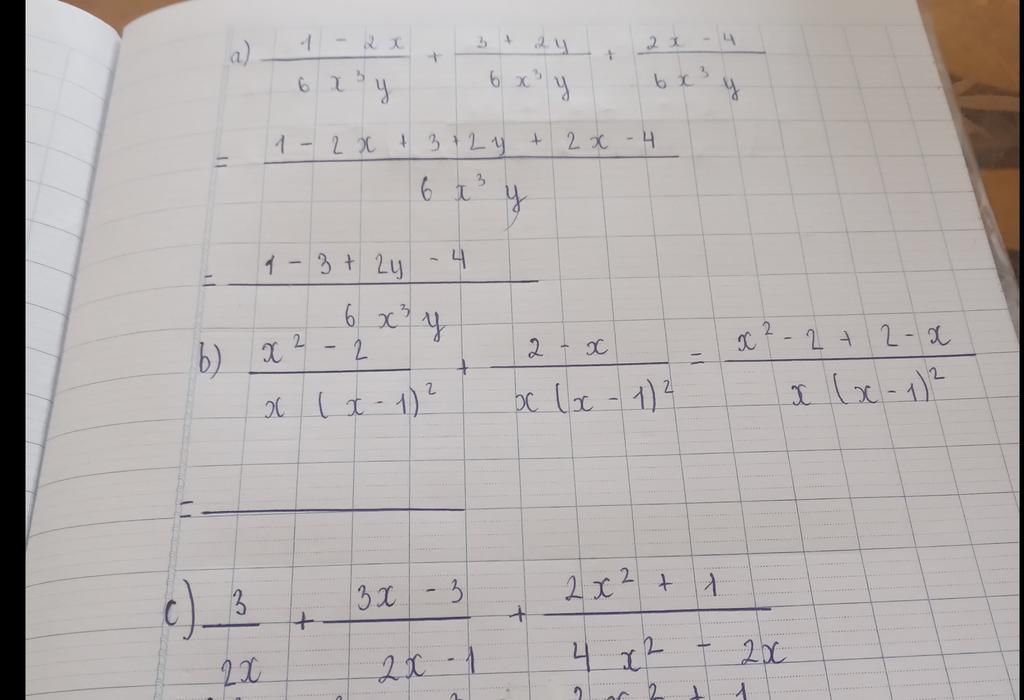 a) 1 - 2x / 6x³y + 3 + 2y / 6x³y + 2x - 4 / 6x³y
= 1 - 2x + 3 + 2y + 2x - 4 / 6x³y
= 1 - 3 + 2y - 4 / 6x³y
b) x² - 2 / x (x - 1)² + 2 - x / x (x - 1)² = x² - 2 + 2 - x / x (x - 1)²
=
c) 3 / 2x + 3x - 3 / 2x - 1 + 2x² + 1 / 4x² - 2x